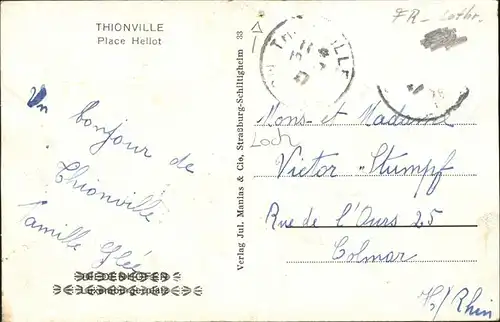 THIONVILLE
Place Hellot
Un bonjour de
Thionville
famille
DIEDENHOFEN
Luxemburgerplatz
Verlag Jul. Manias & Cie, Straßburg-Schiltigheim 33
FR - Lothr.
Mons et Madame
Loch
Victor Stumpf
Rue de l'Ours 25
Colmar
H/Rhin